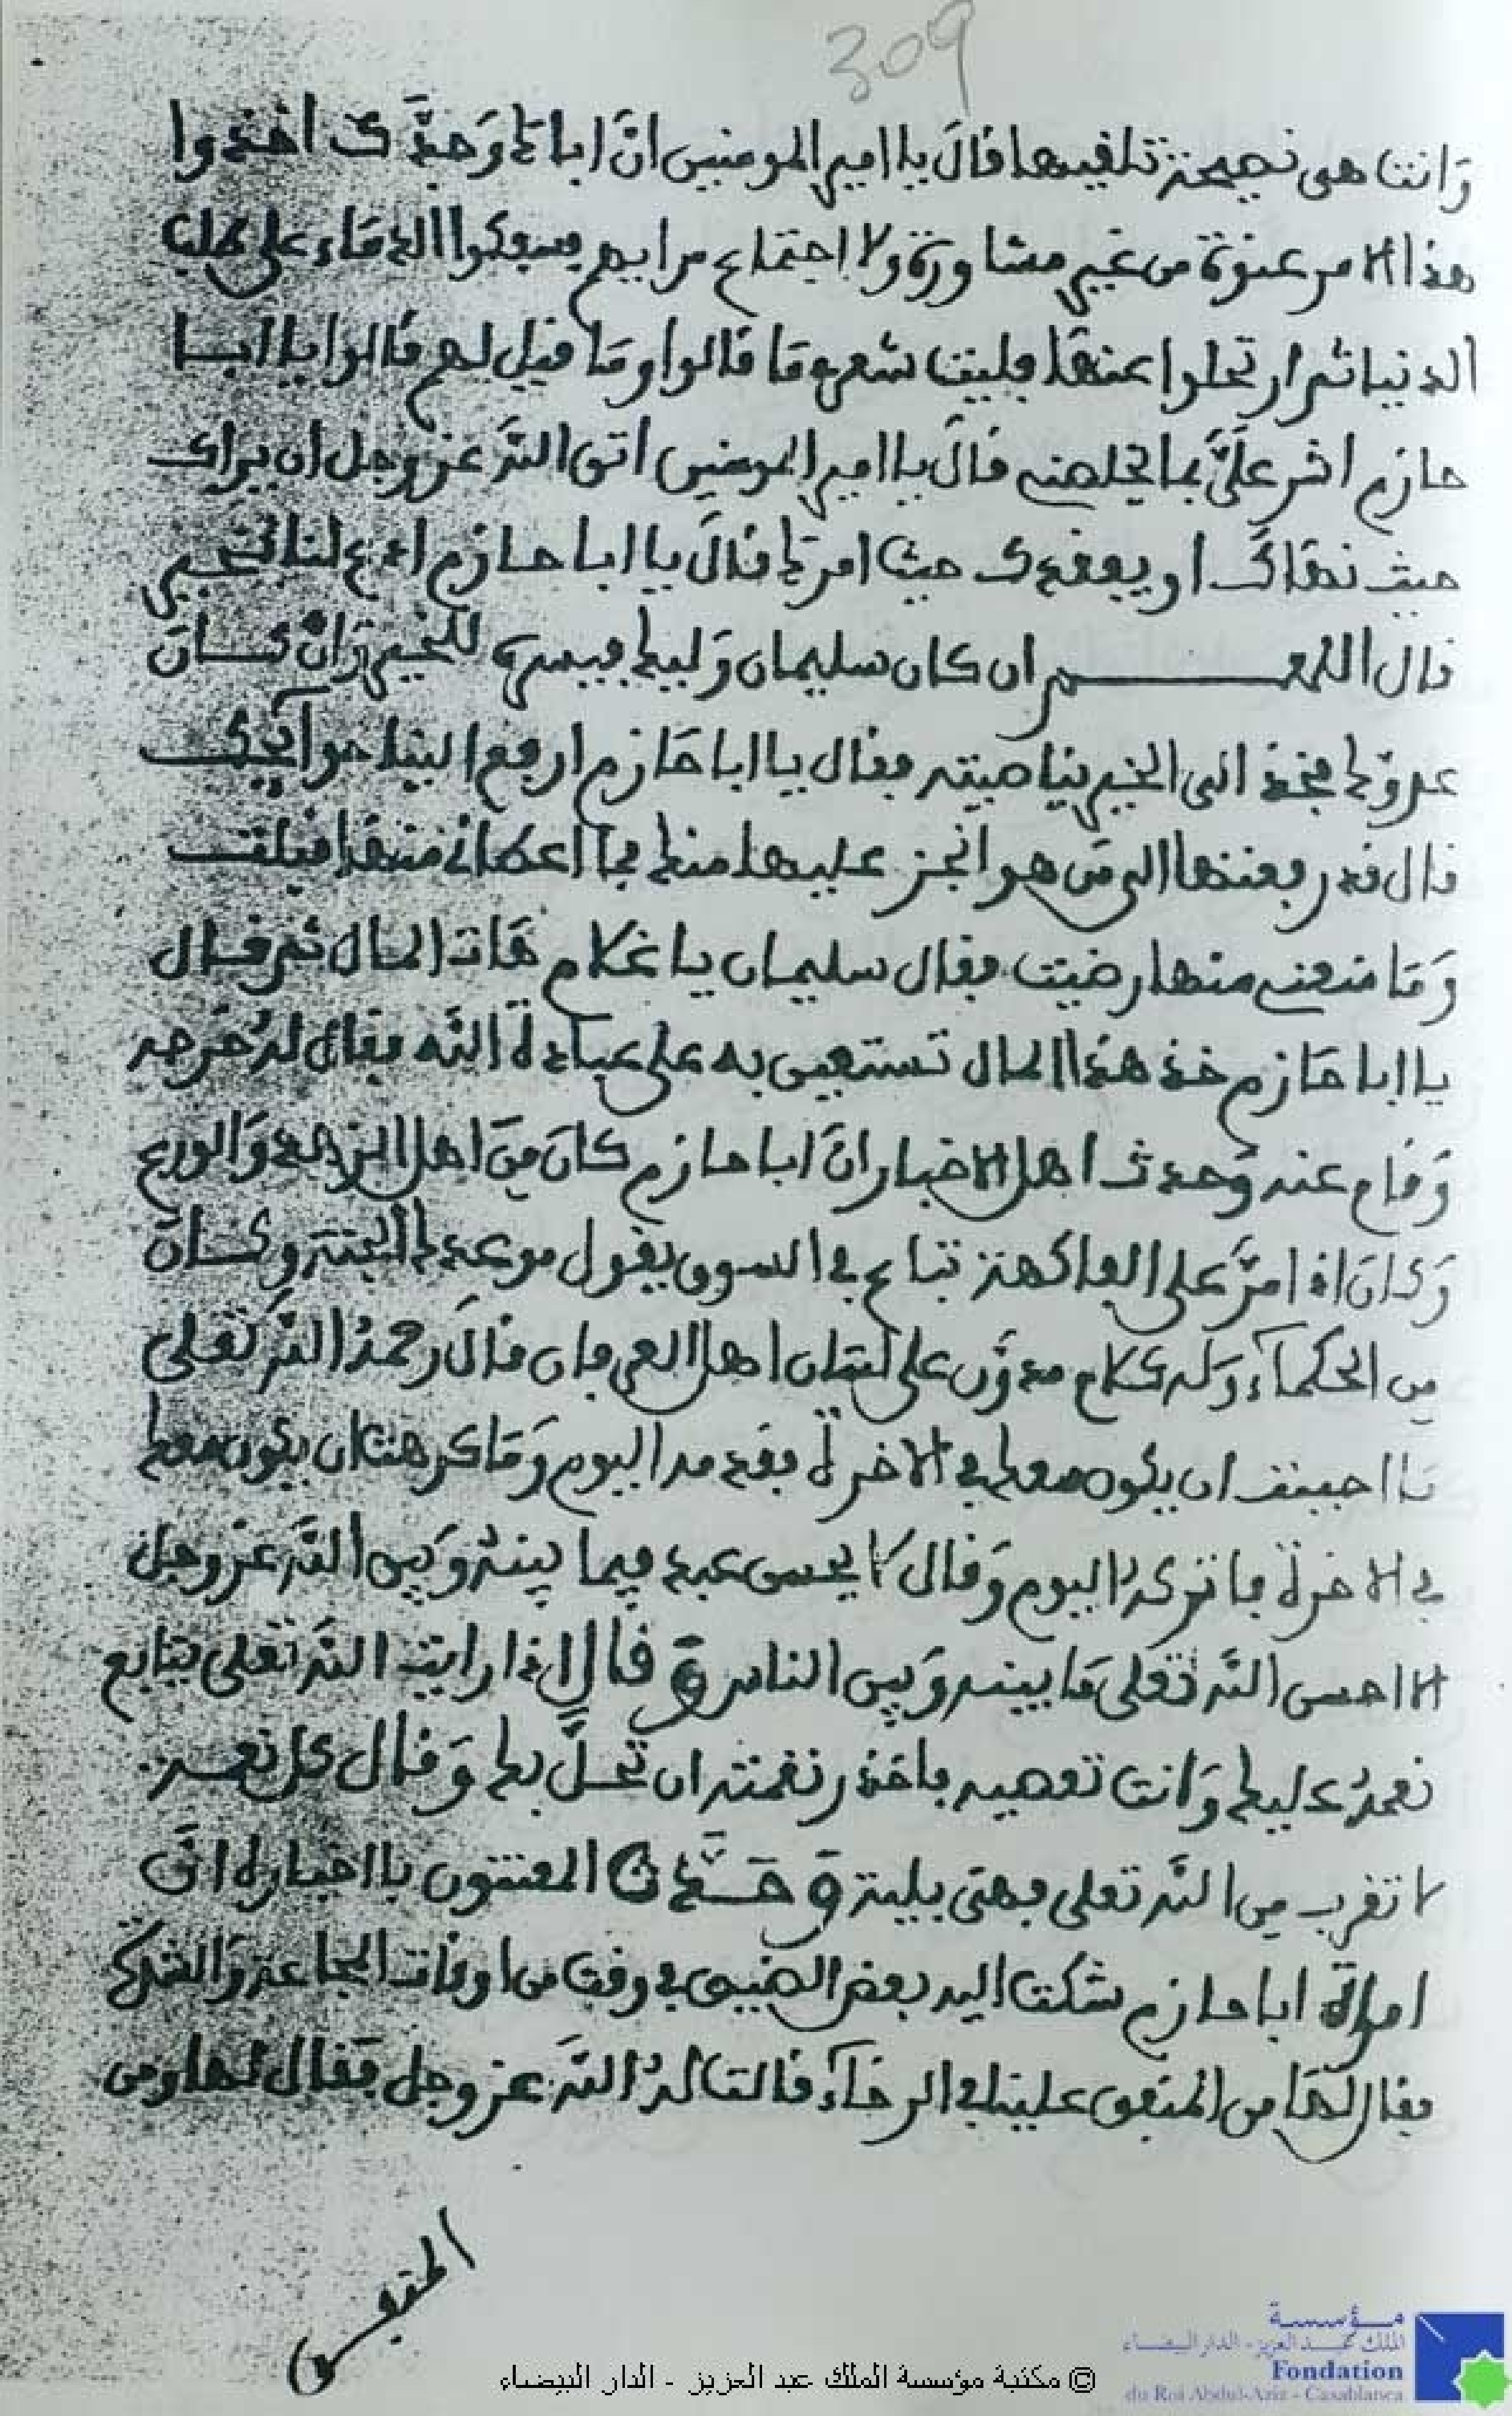 309
وانت هى نصيحة تلقيها قال يا امير المومنين ان اباك وجدك اخذوا
هذا الامر عنوة من غير مشاورة ولا اجتماع من ايهم فسفكوا الدماء على طلب
الدنيا ثم ارتحلوا عنها فليت شعرى ما قالوا وما قيل لهم قالوا يا ابا
حازم اشر علي بما يخلصنى قال يا امير المومنين اتق الله عز وجل ان يراك
حيث نهاك او يفقدك حيث امرك قال يا ابا حازم ادع لنا بخير
قال اللهم ان كان سليمان وليك فيسره للخير وان كان
عدوك فخذ الى الخير بناصيته فقال يا ابا حازم ارفع الينا حوآيجك
قال قد رفعتها الى من هو انجز عليها منك فما اعطانى منها قبلت
وما منعنى منها رضيت فقال سليمان يا غلام هات المال ثم قال
يا ابا حازم خذ هذا المال تستعين به على عبادة الله فقال له
وقام عنه وحدث اهل الاخبار ان ابا حازم كان من اهل الزهد والورع
وكان اذا مر على الفاكهة تباع في السوق يقول موعدك الجنة وكان
من الحكمآء وله كلام مدون على لسان اهل العرفان قال رحمه الله تعلى
ما احببت ان يكون معك في الاخرة فقدمه اليوم وما كرهت ان يكون معك
في الاخرة فاتركه اليوم وقال لا يحسن عبد فيما بينه وبين الله عز وجل
الا احسن الله تعلى ما بينه وبين الناس وقال اذا رايت الله تعلى يتابع
نعمه عليك وانت تعصيه فاحذر نقمته ان تحل بك وقال كل نعمة
لا تقرب من الله تعلى فهى بلية وحدث المعتنون بااخباره ان
امراة ابا حازم شكت اليه بعض الضيق في وقت من اوقات المجاعة والشدة
فقال لها من المنفق علينا في الرخآء قالت له الله عز وجل فقال لها ومن
المنفق
© مكتبة مؤسسة الملك عبد العزيز - الدار البيضاء
مؤسسة
الملك عبد العزيز - الدار البيضاء
Fondation
du Roi Abdul-Aziz - Casablanca